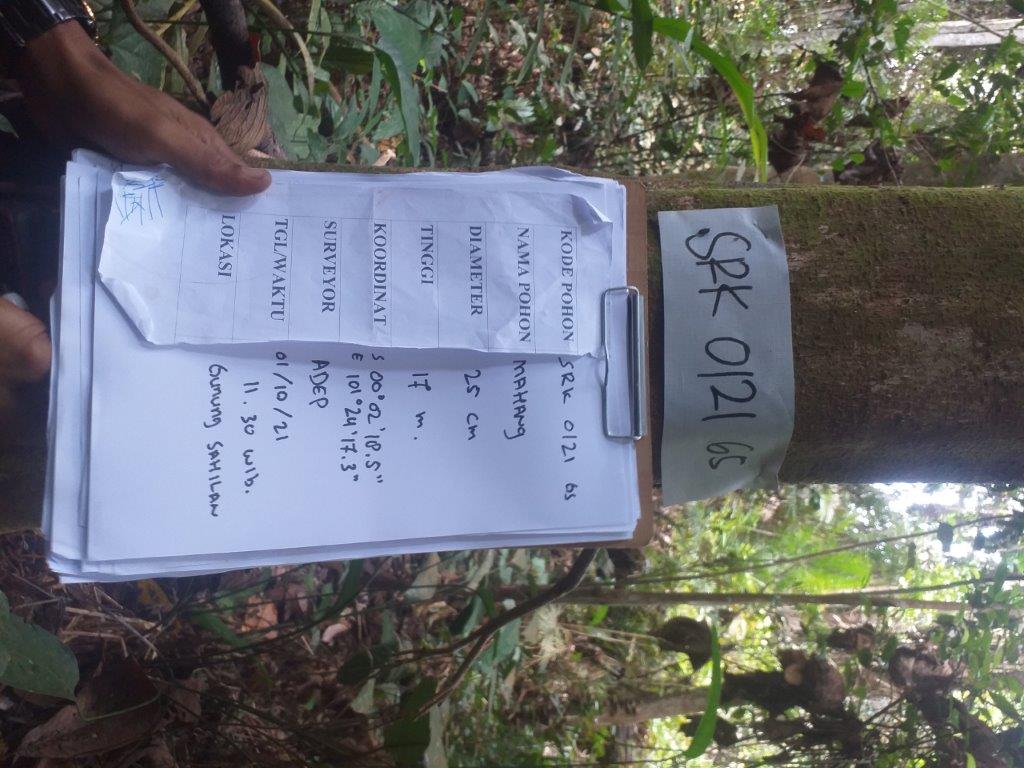 SRK 0121 65
KODE POHON SRK 0121 65
NAMA POHON MAHANG
DIAMETER 25 cm
TINGGI 17 m.
KOORDINAT S 00°02'18.5"
E 101°24'17.3"
SURVEYOR ADEP
TGL/WAKTU 01/10/21
11.30 wib.
LOKASI Gunung SAHILAN